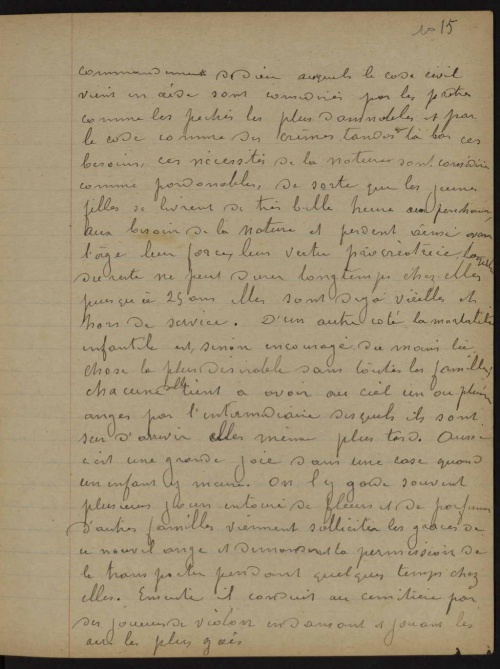 No 15
commandements de dieu auxquels le code civil
vient en aide sont considérés par les prêtres
comme les pechés les plus damnables et par
le code comme des crimes tandis que là bas ces
besoins, ces nécessités de la nature sont considérés
comme pardonables, de sorte que les jeunes
filles se livrent de très belle heure aux penchants
aux besoin de la nature et perdent ainsi avant
l'âge leur force, leur vertu procréatrice laquelle
du reste ne peut durer longtemps chez elles
puisqu'à 25 ans elles sont déjà vieilles et
hors de service. D'un autre coté la mortalité
infantile est, sinon encouragé du moins la
chose la plus désirable dans toutes les familles
chacune elle tient à avoir au ciel un ou plusieurs
anges par l'intermédiaire desquels ils sont
sur d'arriver elles même plus tard. Aussi
c'est une grande joie dans une case quand
un enfant y meurt. On l'y garde souvent
plusieurs jours entouré de fleurs et de parfums
d'autres familles viennent solliciter les graces de
ce nouvel ange et demandent la permission de
le transporter pendant quelques temps chez
elles. Ensuite il est conduit au cimetière par
des joueurs de violon en dansant et jouant les
airs les plus gais